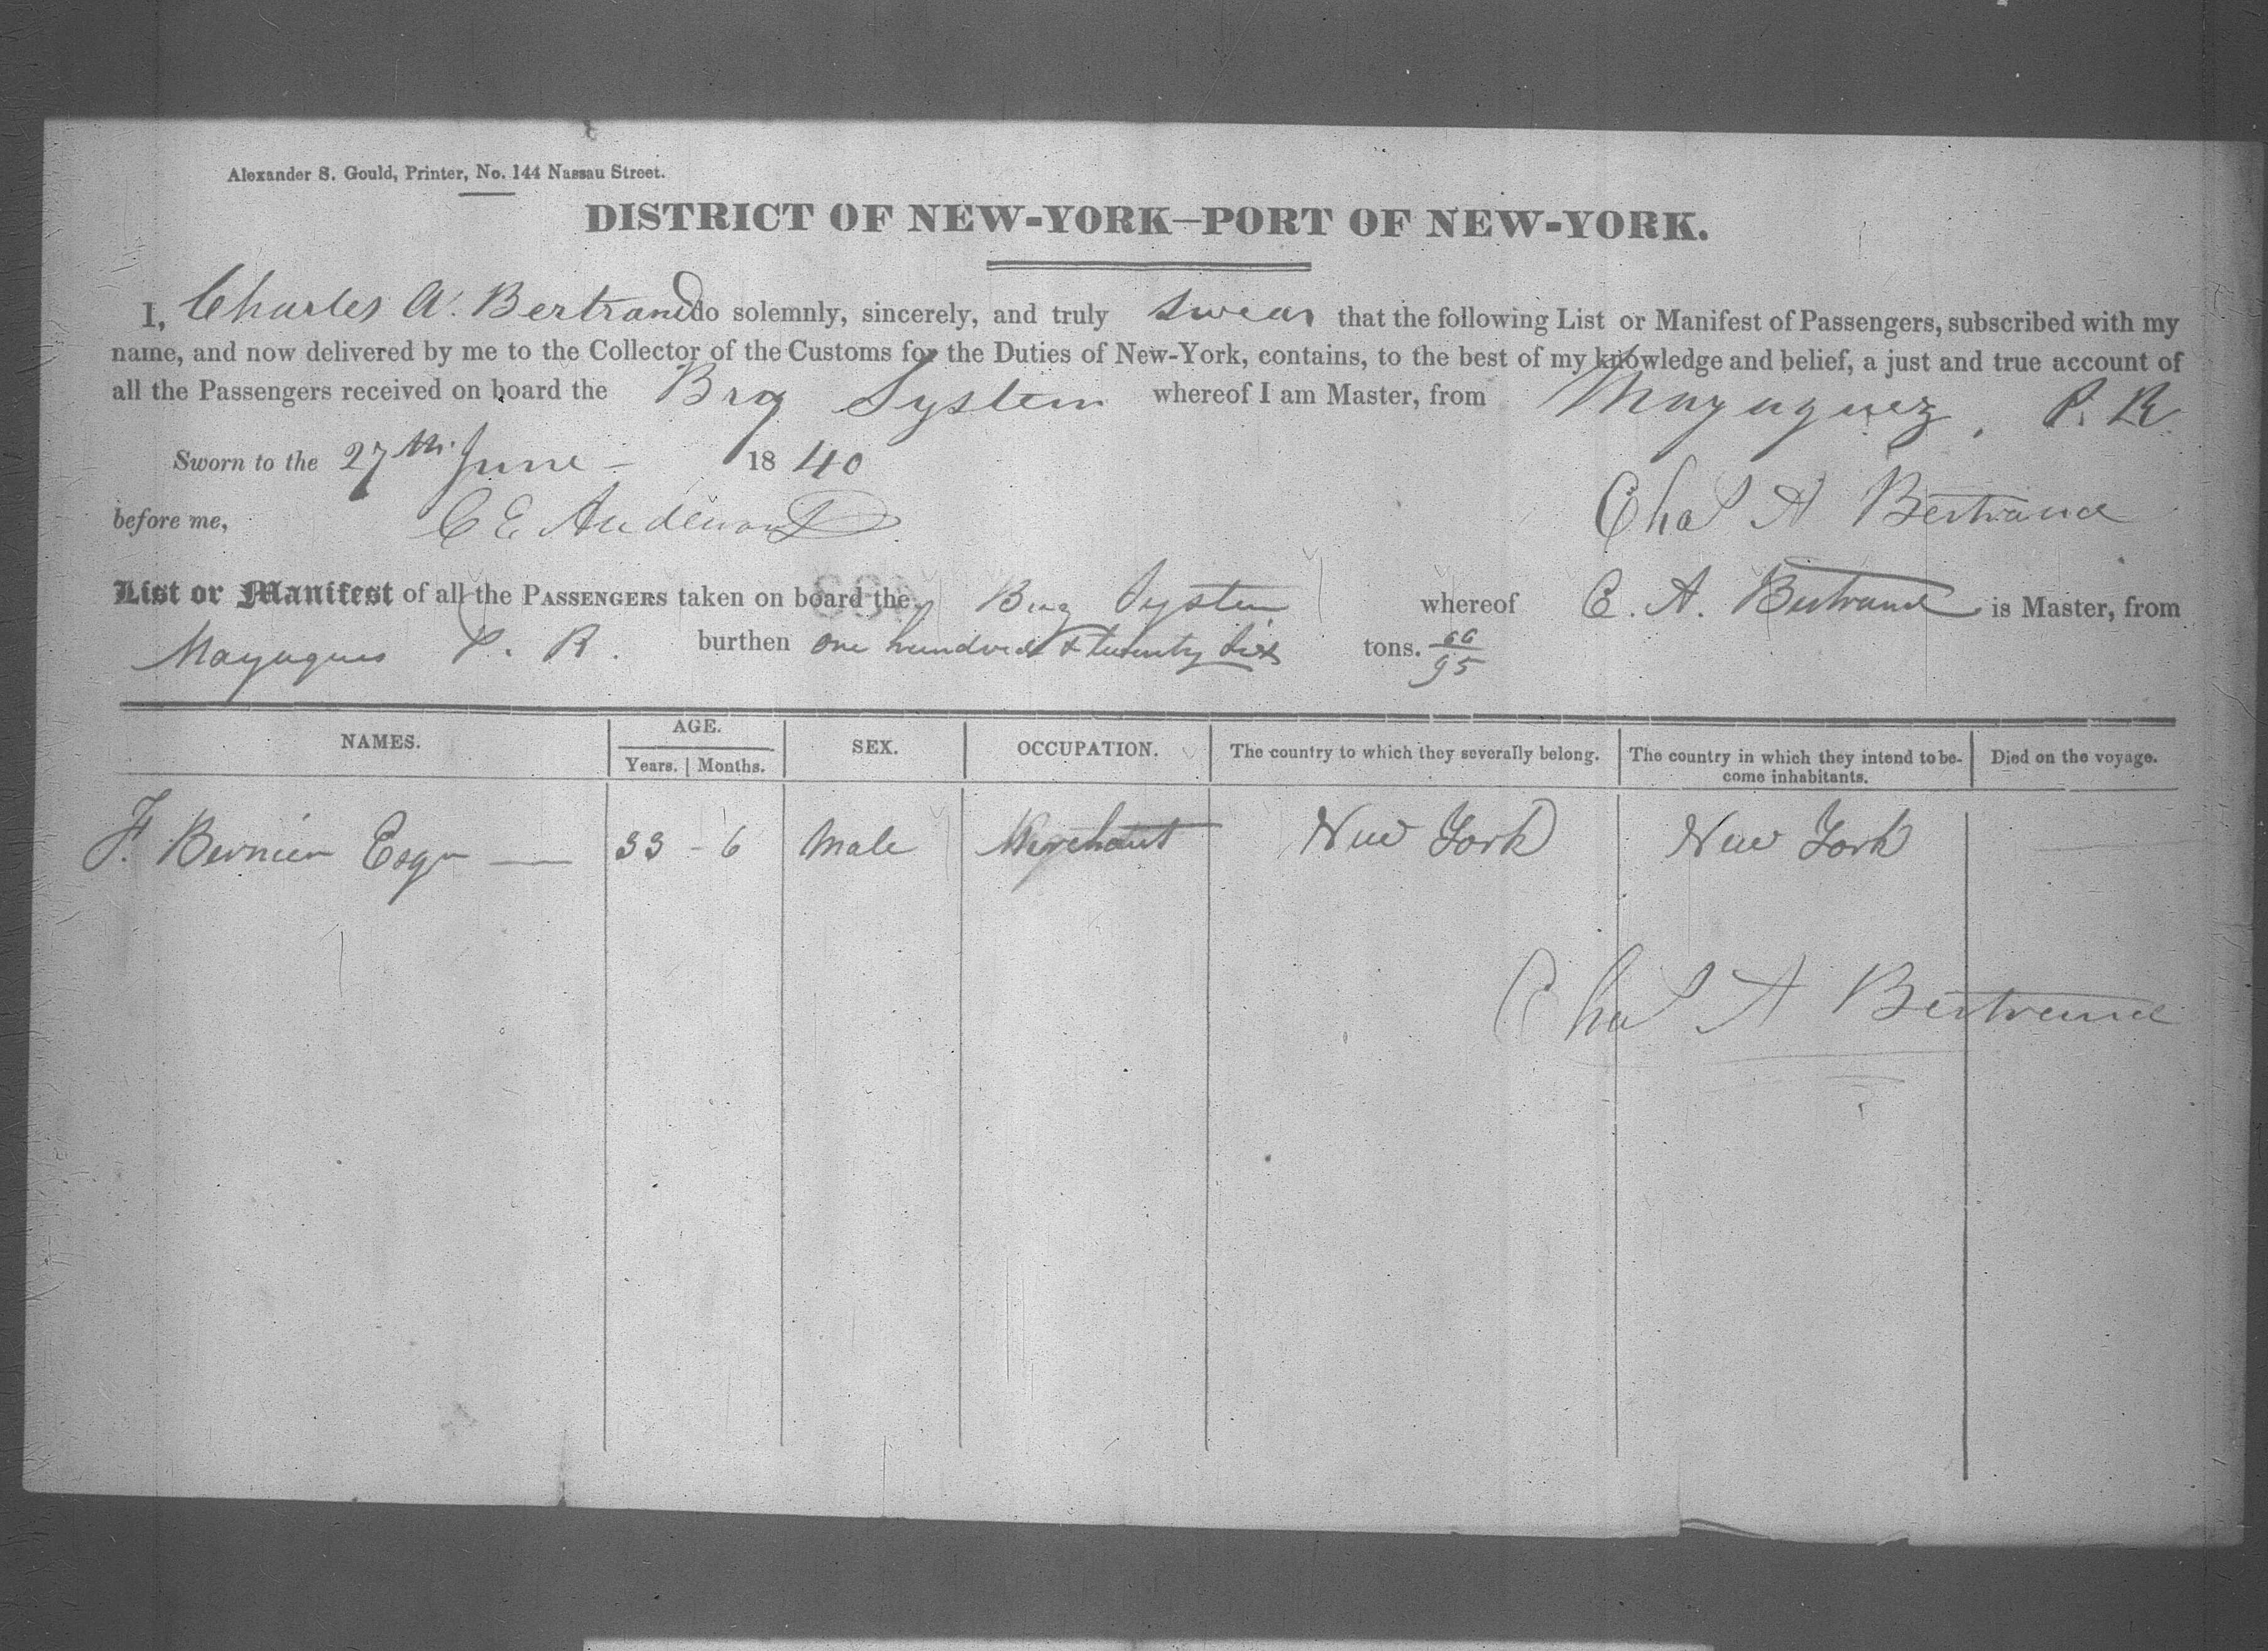 Alexander S. Gould, Printer, No. 144 Nassau Street.
DISTRICT OF NEW-YORK—PORT OF NEW-YORK.
I, Charles A. Bertrand do solemnly, sincerely, and truly swear that the following List or Manifest of Passengers, subscribed with my
name, and now delivered by me to the Collector of the Customs for the Duties of New-York, contains, to the best of my knowledge and belief, a just and true account of
all the Passengers received on board the Brg System whereof I am Master, from Mayaguez, P. R.
Sworn to the 27th June 1840
Chas A Bertrand
before me, C E Anderson
List or Manifest of all the PASSENGERS taken on board the Brig System whereof C. A. Bertrand is Master, from
Mayagues P. R. burthen one hundred & twenty six tons. 66/95
NAMES. AGE. Years. Months. SEX. OCCUPATION. The country to which they severally belong. The country in which they intend to become inhabitants. Died on the voyage.
F. Bernier Esqr — 33 - 6 Male Merchant New York New York
Chas A Bertrand